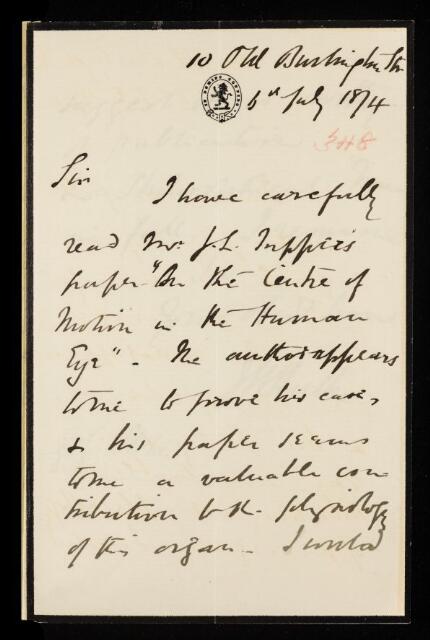 10 Old Burlington Str
6th July 1874
348
Sir
I have carefully
read Mr. J. L. Tupper's
paper "On the Centre of
Motion in the Human
Eye" - The author appears
to me to prove his case,
& his paper seems
to me a valuable con
tribution to the physiology
of this organ - I would